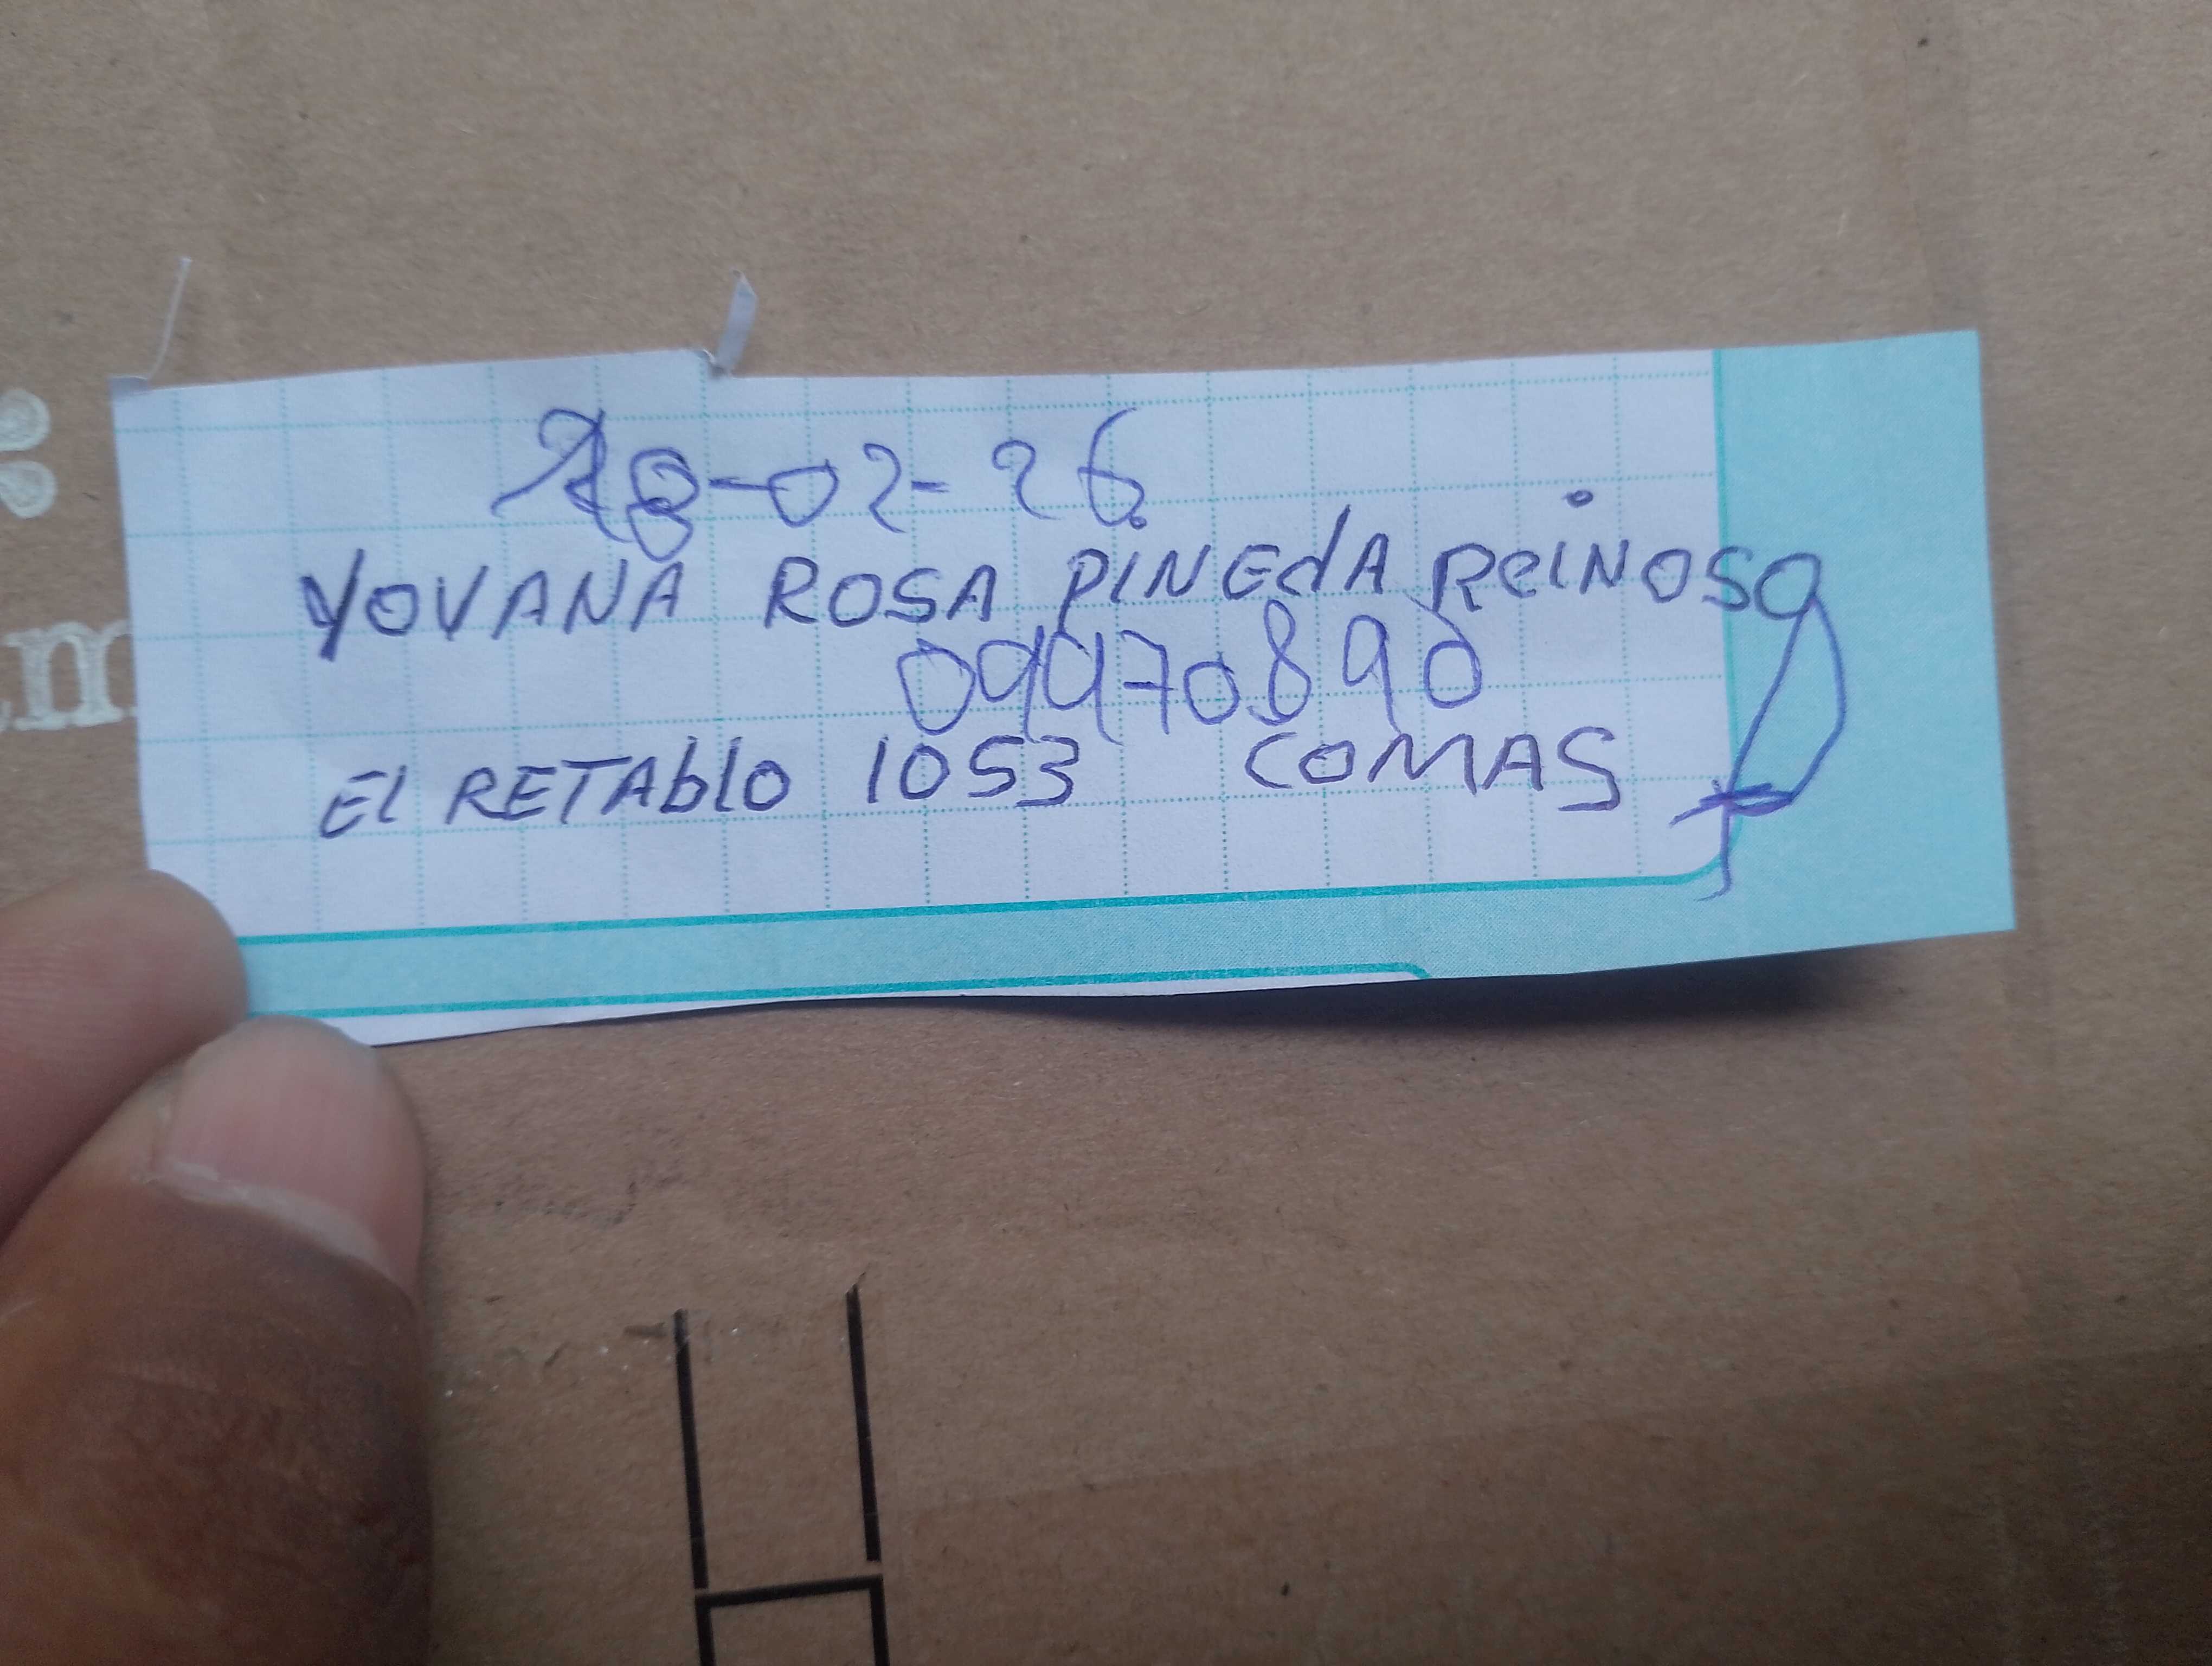 18-02-26
YOVANA ROSA PINEdA REINOSO
09970890
El RETAblO 1053 COMAS